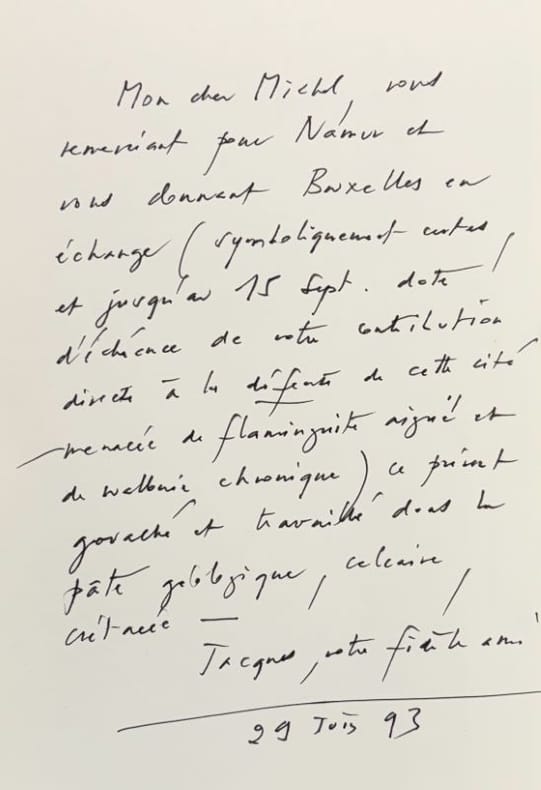 Mon cher Michel, vous
remerciant pour Namur et
vous donnant Bruxelles en
échange (symboliquement certes
et jusqu'au 15 Sept. date
d'échéance de votre contribution
directe à la défense de cette cité
menacée de flaminguite aiguë et
de wallonie chronique) ce présent
gouaché et travaillé dans la
pâte géologique, calcaire,
crétacée —
Jacques, votre fidèle ami
29 Juin 93